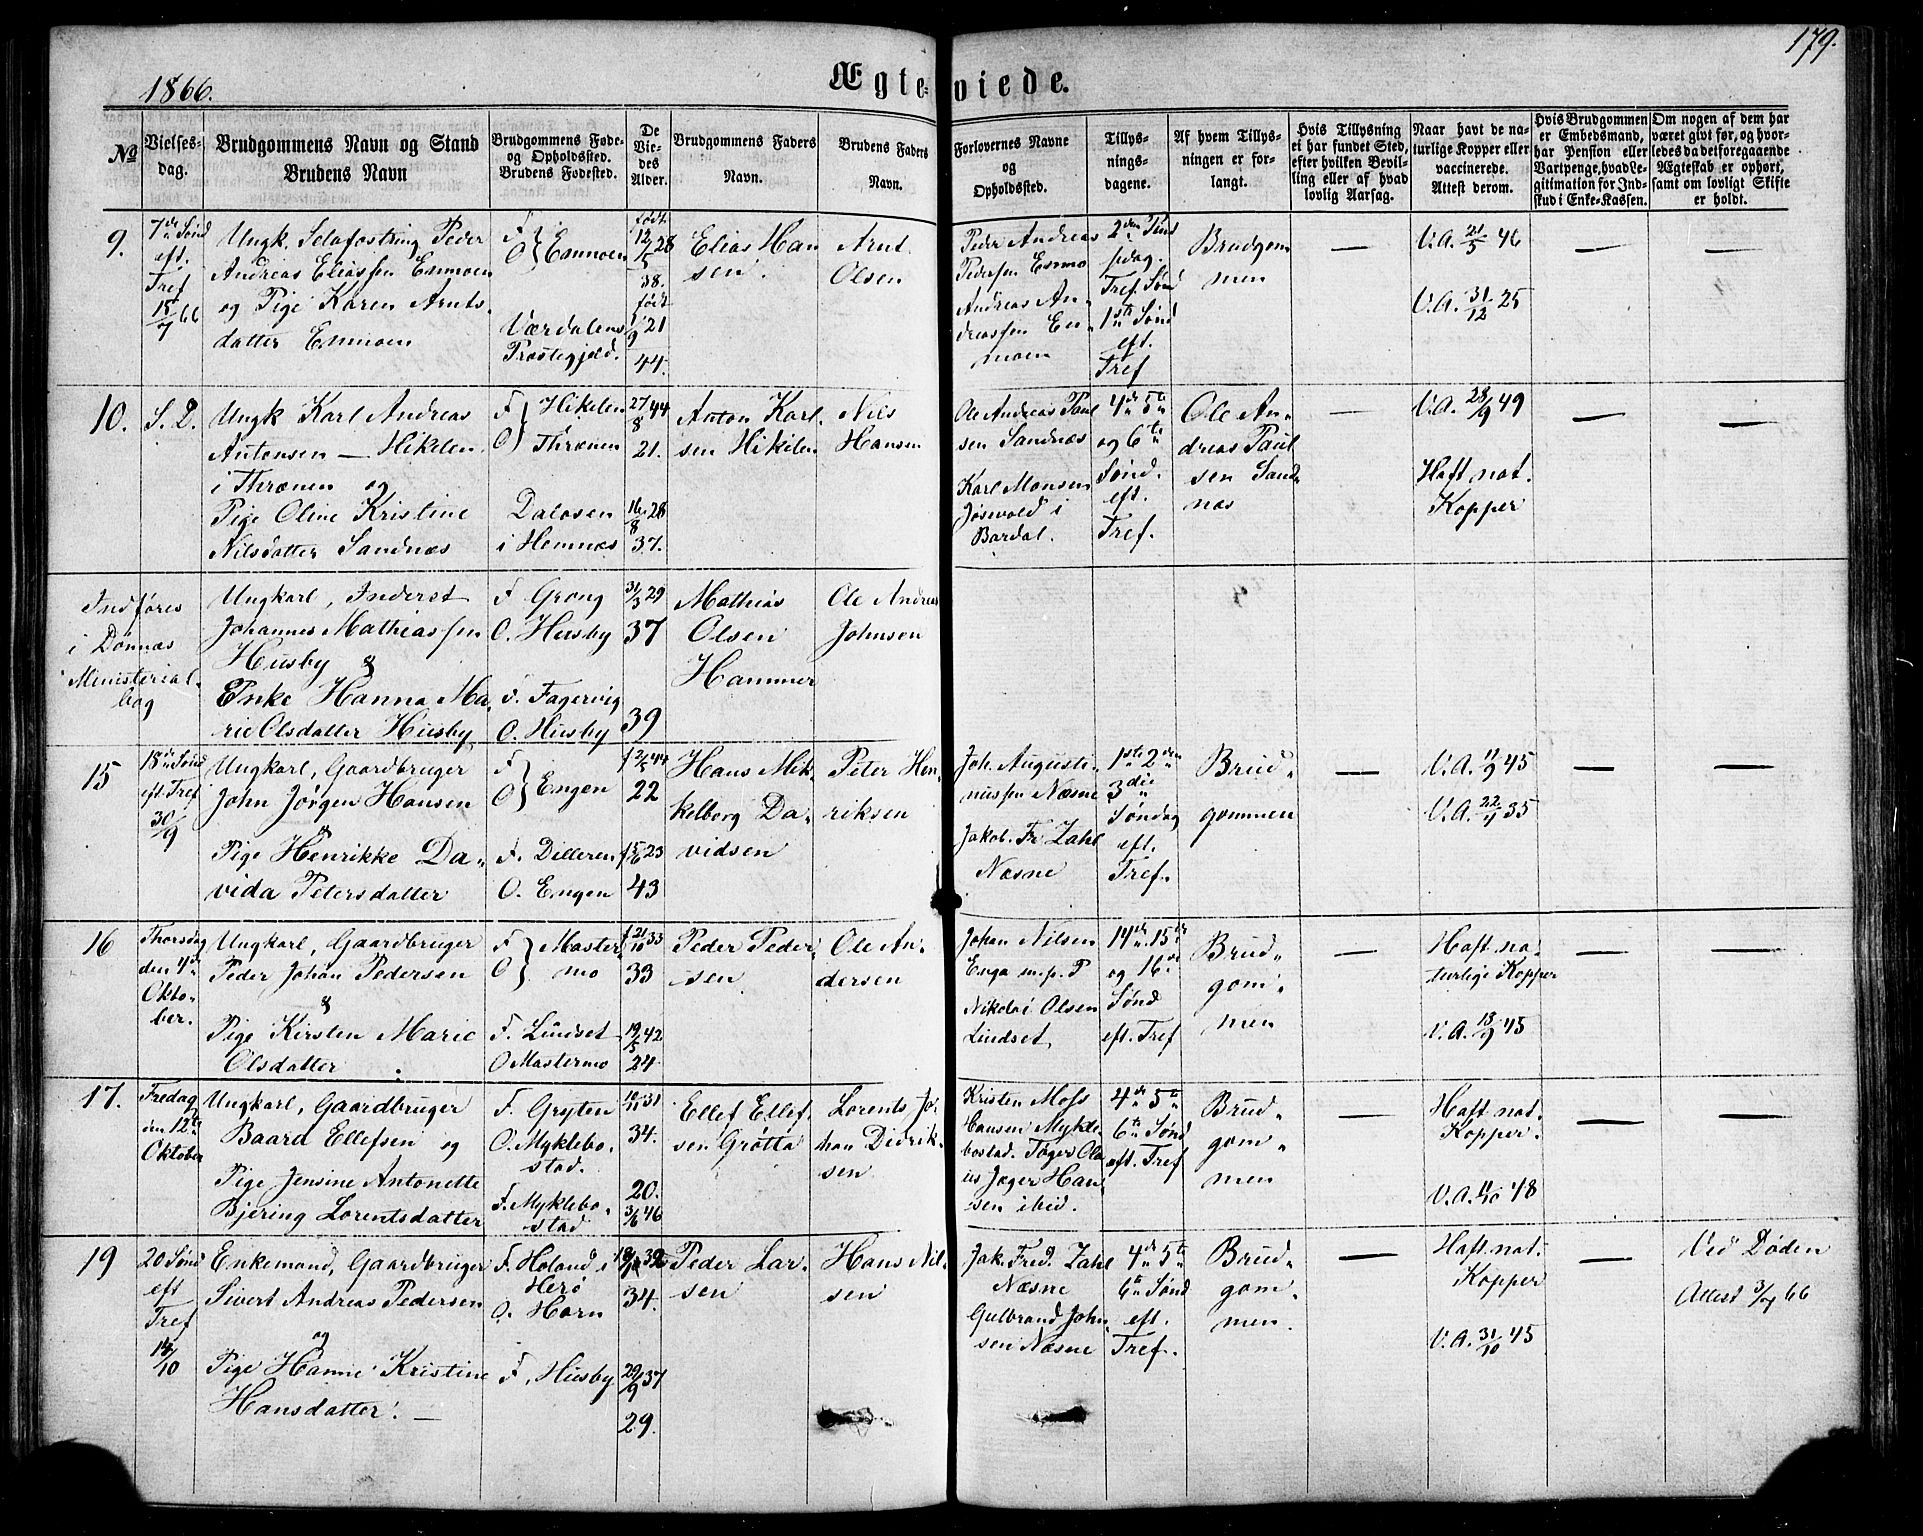 179.
1866.
Ægte-viede.
No
Vielses-
dag.
Brudgommens Navn og Stand
Brudens Navn
Brudgommens Føde-
og Opholdssted.
Brudens Fødested.
De
Vie-
des
Alder.
Brudgommens Faders
Navn.
Brudens Faders
Navn.
Forlovernes Navne
og
Opholdssted.
Tillys-
nings-
dagene.
Af hvem Tillys-
ningen er for-
langt.
Hvis Tillysning
ei har fundet Sted,
efter hvilken Bevil-
ling eller af hvad
lovlig Aarsag.
Naar havt de na-
turlige Kopper eller
vaccinerede.
Attest derom.
Hvis Brudgommen
er Embedsmand,
har Pension eller
Vartpenge, hvad Le-
gitimation for Ind-
skud i Enke-Kassen.
Om nogen af dem har
været givt før, og hvor-
ledes da det foregaaende
Ægteskab er ophørt,
samt om lovligt Skifte
er holdt.
9.
7de Sønd
eft.
Tref
15/7 66
Ungk. Selvfostring Peder
Andreas Eliassen Enmoen
og Pige Karen Arnts-
datter Enmoen
F.
O. Enmoen
Værdalens
Præstegjeld.
født
12/5 28
38.
født
1/9 21
44.
Elias Han
sen.
Arnt
Olsen
Peder Andreas
Pedersen Enmo
Andreas An-
dreassen En-
moen
2den Pints
Tref. Sønd
1ste Sønd
eft.
Tref
Brudgom
men
—
V.A. 21/5 46
V.A. 31/12 25
—
—
10.
S. D.
Ungk Karl Andreas
Antonsen — Hikelen
i Thrænen og
Pige Oline Kristine
Nilsdatter Sandnæs
F. Hikelen
O Thrænen
Dalosen
i Hemnæs
27/8 44
21.
16/8 28
37.
Anton Karl
sen Hikelen
Nils
Hansen
Ole Andreas Paul
sen Sandnæs
Karl Monsen
Jøsvold i
Bardal.
4de 5te
og 6te
Sønd.
eft.
Tref.
Ole An-
dreas Paul
sen Sand
næs
—
V.A. 28/9 49
Haft nat.
Kopper
—
—
Indføres
i Dønnæs
Ministerial-
bog
Ungkarl, Inderst
Johannes Mathiassen
Husby &
Enke Hanna Ma-
rie Olsdatter Husby
F Grong
O. Husby
F. Fagervig
O. Husby
31/3 29
37
39
Mathias
Olsen
Hammer
Ole Andreas
Johnsen
15
18de Sønd
eft. Tref
30/9
Ungkarl, Gaardbruger
John Jørgen Hansen
&
Pige Henrikke Da-
vida Petersdatter
F
O Engen
F. Dilleren
O. Engen
f 2/5 44
22
f 15/6 23
43
Hans Mik-
kelborg Da-
vidsen
Peter Hen-
riksen
Joh. Augusti-
nussen Næsne
Jakob. Fr. Zahl
Næsne
1ste 2den
3die
Søndag
eft.
Tref.
Brud-
gommen
—
V.A. 11/9 45
V.A. 22/4 35
—
—
16
Thorsdag
den 4de
Okto-
ber.
Ungkarl, Gaardbruger
Peder Johan Pedersen
&
Pige Kirsten Marie
Olsdatter
F Master
O mo
F. Lindset
O Mastermo
f 21/10 33
33
19/5 42
24
Peder Peder-
sen
Ole An-
dersen
Johan Nilsen
Enga m. p. P
Nikolai Olsen
Lindset
14de 15de
og 16de
Sønd
eft. Tref
Brud-
gom-
men
—
Haft na-
turlige Kopper
V.A. 13/9 45
—
—
17.
Fredag
den 12te
Oktober
Ungkarl, Gaardbruger
Baard Ellefsen og
Pige Jensine Antonette
Bjering Lorentsdatter
F. Gryten
O. Myklebo-
stad.
F. Myklebo-
stad
10/11 31
34.
20.
3/6 46
Ellef Ellef
sen Grøtta
Lorents Jo-
han Didrik-
sen
Kristen Moss
Hansen Mykle-
bostad. Tøger Ola
us Jæger Han
sen ibid.
4de 5te
6te Sønd
eft. Tref
Brud-
gom-
men
—
Haft nat.
Kopper.
V.A. 11/10 48
—
—
19
20 Sønd
eft
Tref
14/10
Enkemand, Gaardbruger
Sivert Andreas Pedersen
og
Pige Hanne Kristine
Hansdatter. —
F. Holand i
Herø
O. Horn
F. Husby
32
34.
29/9 37
29.
Peder Lar-
sen
Hans Nil-
sen
Jak. Fred. Zahl
Næsne
Gulbrand John
sen Næsne
4de 5te
6te Sønd
eft.
Tref.
Brud-
gom-
men.
—
Haft nat.
Kopper
V.A. 31/10 45
—
Ved Døden
Attest 3/7 66